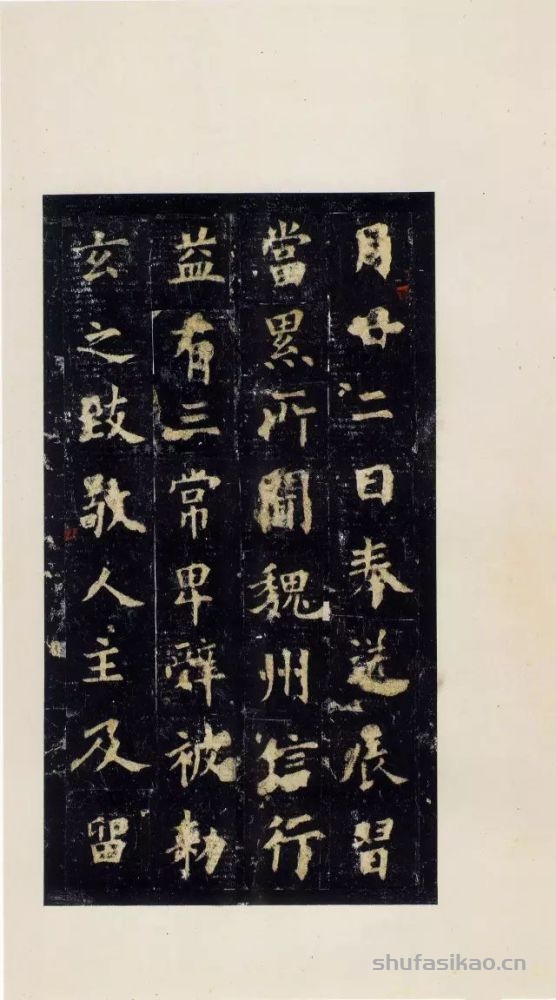 月廿二日奉送展習
當累所聞魏州信行
益有三常卑辤被勅
玄之致敬人主及留
shufasikao.cn